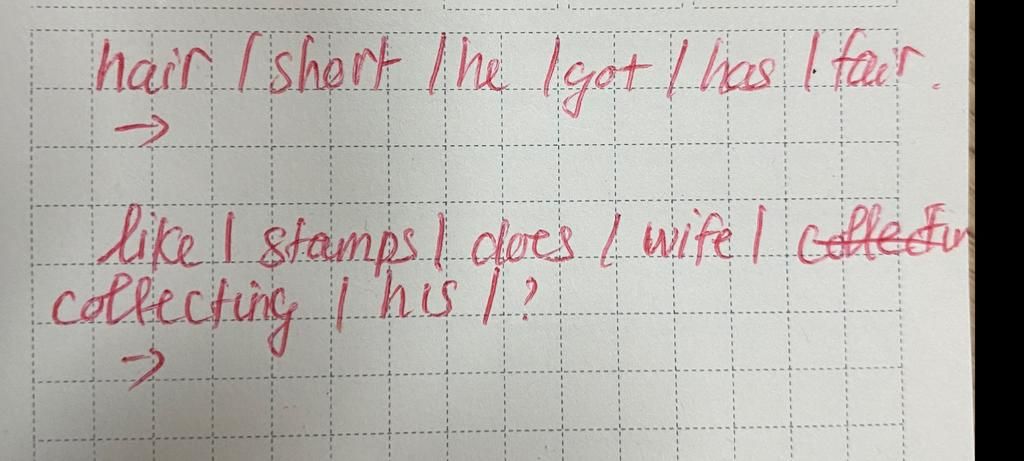 hair / short / he / got / has / fair.
→
like / stamps / does / wife /
collecting / his / ?
→